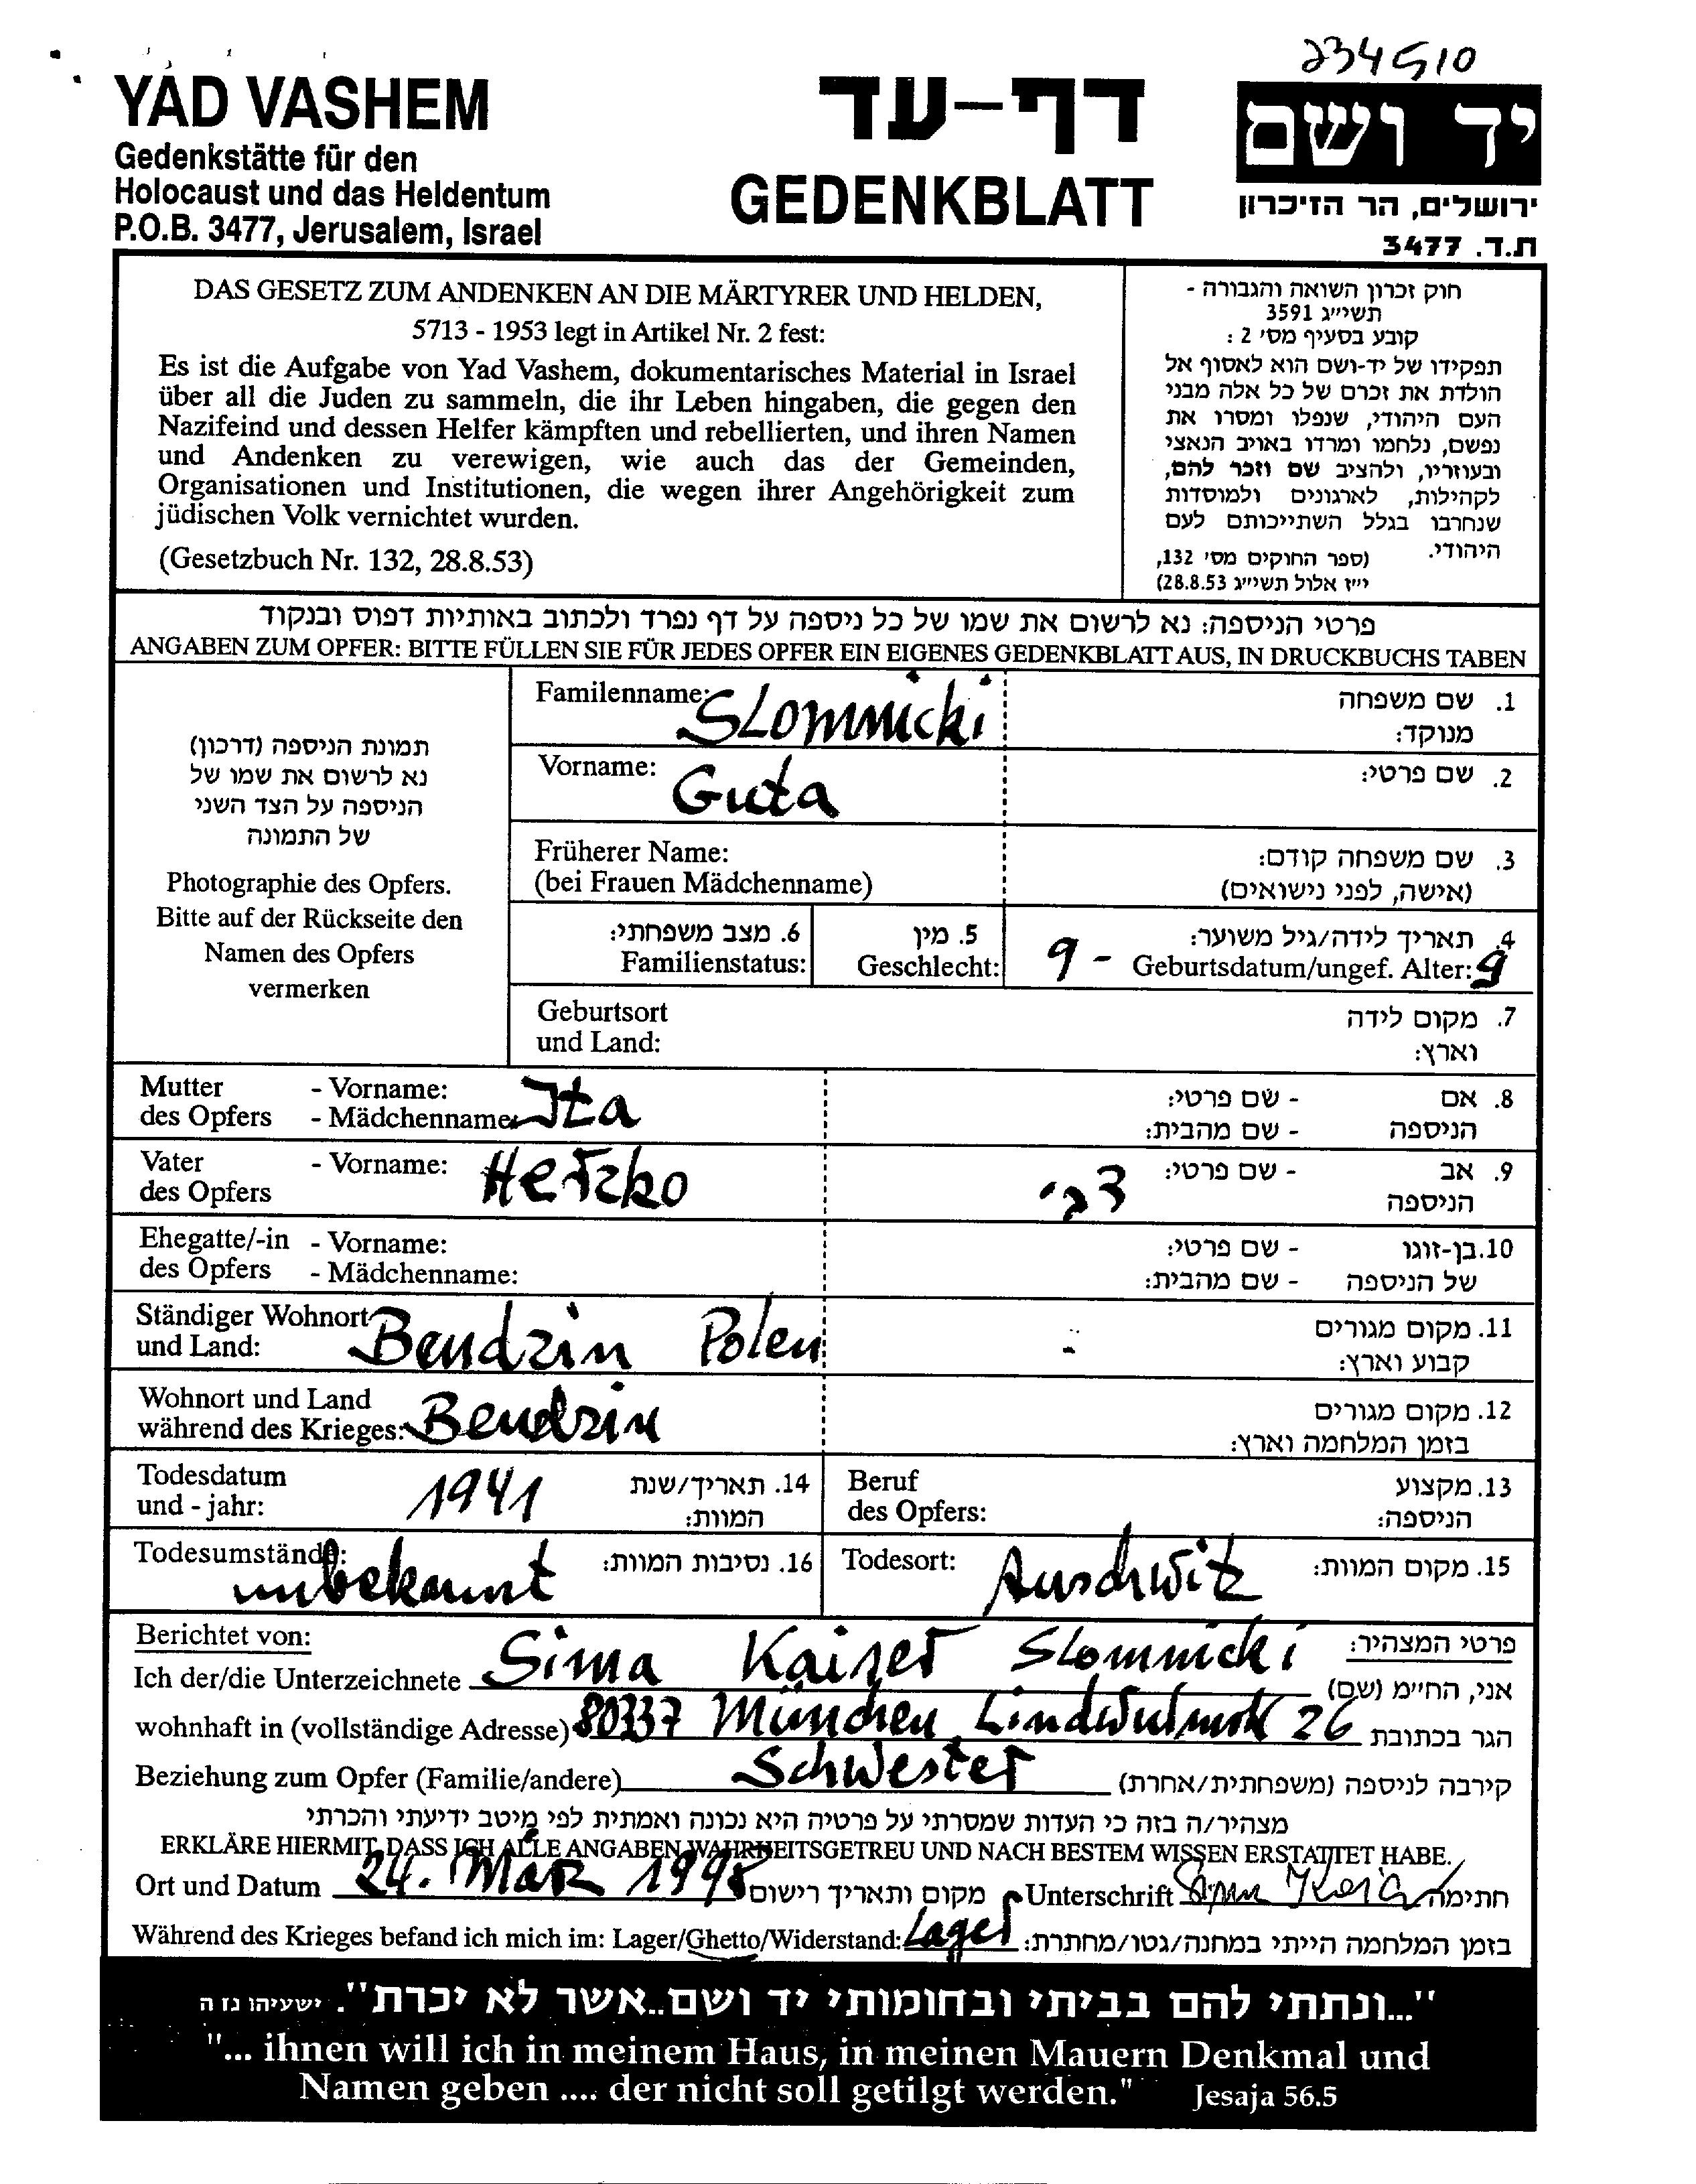 234510
YAD VASHEM
Gedenkstätte für den
Holocaust und das Heldentum
P.O.B. 3477, Jerusalem, Israel
דף-עד
GEDENKBLATT
יד ושם
ירושלים, הר הזיכרון
ת.ד. 3477
DAS GESETZ ZUM ANDENKEN AN DIE MÄRTYRER UND HELDEN,
5713 - 1953 legt in Artikel Nr. 2 fest:
Es ist die Aufgabe von Yad Vashem, dokumentarisches Material in Israel
über all die Juden zu sammeln, die ihr Leben hingaben, die gegen den
Nazifeind und dessen Helfer kämpften und rebellierten, und ihren Namen
und Andenken zu verewigen, wie auch das der Gemeinden,
Organisationen und Institutionen, die wegen ihrer Angehörigkeit zum
jüdischen Volk vernichtet wurden.
(Gesetzbuch Nr. 132, 28.8.53)
חוק זכרון השואה והגבורה -
תשי״ג 3591
קובע בסעיף מס׳ 2 :
תפקידו של יד-ושם הוא לאסוף אל
הולדת את זכרם של כל אלה מבני
העם היהודי, שנפלו ומסרו את
נפשם, נלחמו ומרדו באויב הנאצי
ובעוזריו, ולהציב שם וזכר להם,
לקהילות, לארגונים ולמוסדות
שנחרבו בגלל השתייכותם לעם
היהודי. (ספר החוקים מס׳ 132,
י״ז אלול תשי״ג 28.8.53)
פרטי הניספה: נא לרשום את שמו של כל ניספה על דף נפרד ולכתוב באותיות דפוס ובנקוד
ANGABEN ZUM OPFER: BITTE FÜLLEN SIE FÜR JEDES OPFER EIN EIGENES GEDENKBLATT AUS, IN DRUCKBUCHS TABEN
תמונת הניספה (דרכון)
נא לרשום את שמו של
הניספה על הצד השני
של התמונה
Photographie des Opfers.
Bitte auf der Rückseite den
Namen des Opfers
vermerken
Familenname: SLOMNicki
1. שם משפחה
מנוקד:
Vorname: Guta
2. שם פרטי:
Früherer Name:
(bei Frauen Mädchenname)
3. שם משפחה קודם:
(אישה, לפני נישואים)
6. מצב משפחתי:
Familienstatus:
5. מין
Geschlecht:
4. תאריך לידה/גיל משוער:
9 - Geburtsdatum/ungef. Alter: 9
Geburtsort
und Land:
7. מקום לידה
וארץ:
Mutter - Vorname: Ita
des Opfers - Mädchenname:
8. אם - שם פרטי:
הניספה - שם מהבית:
Vater - Vorname: Herzko
des Opfers
9. אב - שם פרטי:
הניספה
Ehegatte/-in - Vorname:
des Opfers - Mädchenname:
10. בן-זוגו - שם פרטי:
של הניספה - שם מהבית:
Ständiger Wohnort
und Land: Bendzin Polen
11. מקום מגורים
קבוע וארץ:
Wohnort und Land
während des Krieges: Bendzin
12. מקום מגורים
בזמן המלחמה וארץ:
Todesdatum
und - jahr: 1941
14. תאריך/שנת
המוות:
Beruf
des Opfers:
13. מקצוע
הניספה:
Todesumstände:
unbekannt
16. נסיבות המוות:
Todesort: Auschwitz
15. מקום המוות:
Berichtet von:
פרטי המצהיר:
Ich der/die Unterzeichnete Sima Kaiser Slomnicki אני, החי״מ (שם)
wohnhaft in (vollständige Adresse) 80337 München 26 הגר בכתובת
Beziehung zum Opfer (Familie/andere) Schwester קירבה לניספה (משפחתית/אחרת)
מצהיר/ה בזה כי העדות שמסרתי על פרטיה היא נכונה ואמתית לפי מיטב ידיעתי והכרתי
ERKLÄRE HIERMIT, DASS ICH ALLE ANGABEN WAHRHEITSGETREU UND NACH BESTEM WISSEN ERSTATTET HABE.
Ort und Datum 24. März 1998 מקום ותאריך רישום Unterschrift חתימה
Während des Krieges befand ich mich im: Lager/Ghetto/Widerstand: Lager בזמן המלחמה הייתי במחנה/גטו/מחתרת:
"...ונתתי להם בביתי ובחומותי יד ושם..אשר לא יכרת". ישעיהו נז ה
"... ihnen will ich in meinem Haus, in meinen Mauern Denkmal und
Namen geben .... der nicht soll getilgt werden." Jesaja 56.5